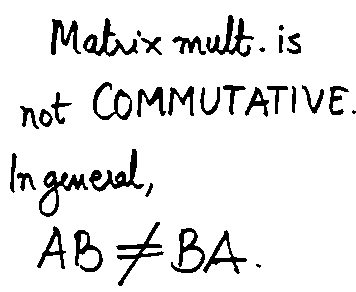 Matrix mult. is
not COMMUTATIVE.
In general,
AB ≠ BA.